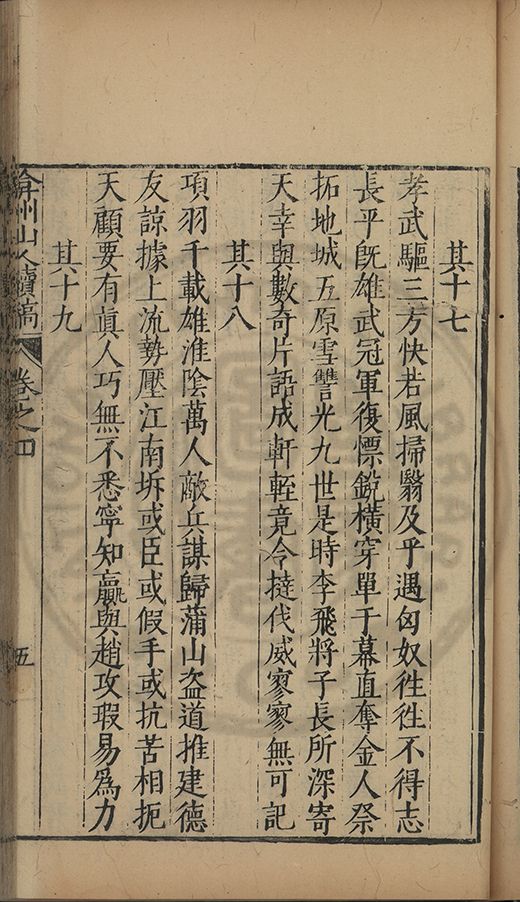 其十七
孝武驅三方快若風掃翳及乎遇匈奴徃徃不得志
長平旣雄武冠軍復慓銳橫穿單于幕直奪金人祭
拓地城五原雪讐光九世是時李飛將子長所深寄
天幸與數奇片語成軒輊竟令撻伐威寥寥無可記
其十八
項羽千載雄淮陰萬人敵兵謀歸蒲山盗道推建德
友諒據上流勢壓江南坼或臣或假手或抗苦相扼
天顧要有眞人巧無不悉寧知嬴與趙攻瑕易爲力
其十九
弇州山人續稿 卷之四 五